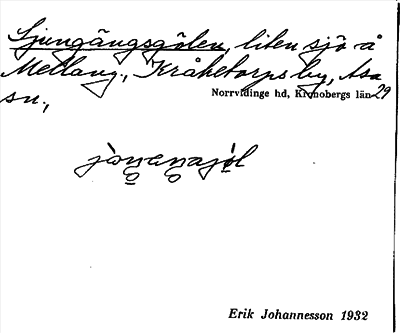 Ljungängsgölen, liten sjö å
Mellang., Kråketorps by, Asa
sn., Norrvidinge hd, Kronobergs län 29
jo̱nænajøl
Erik Johannesson 1932